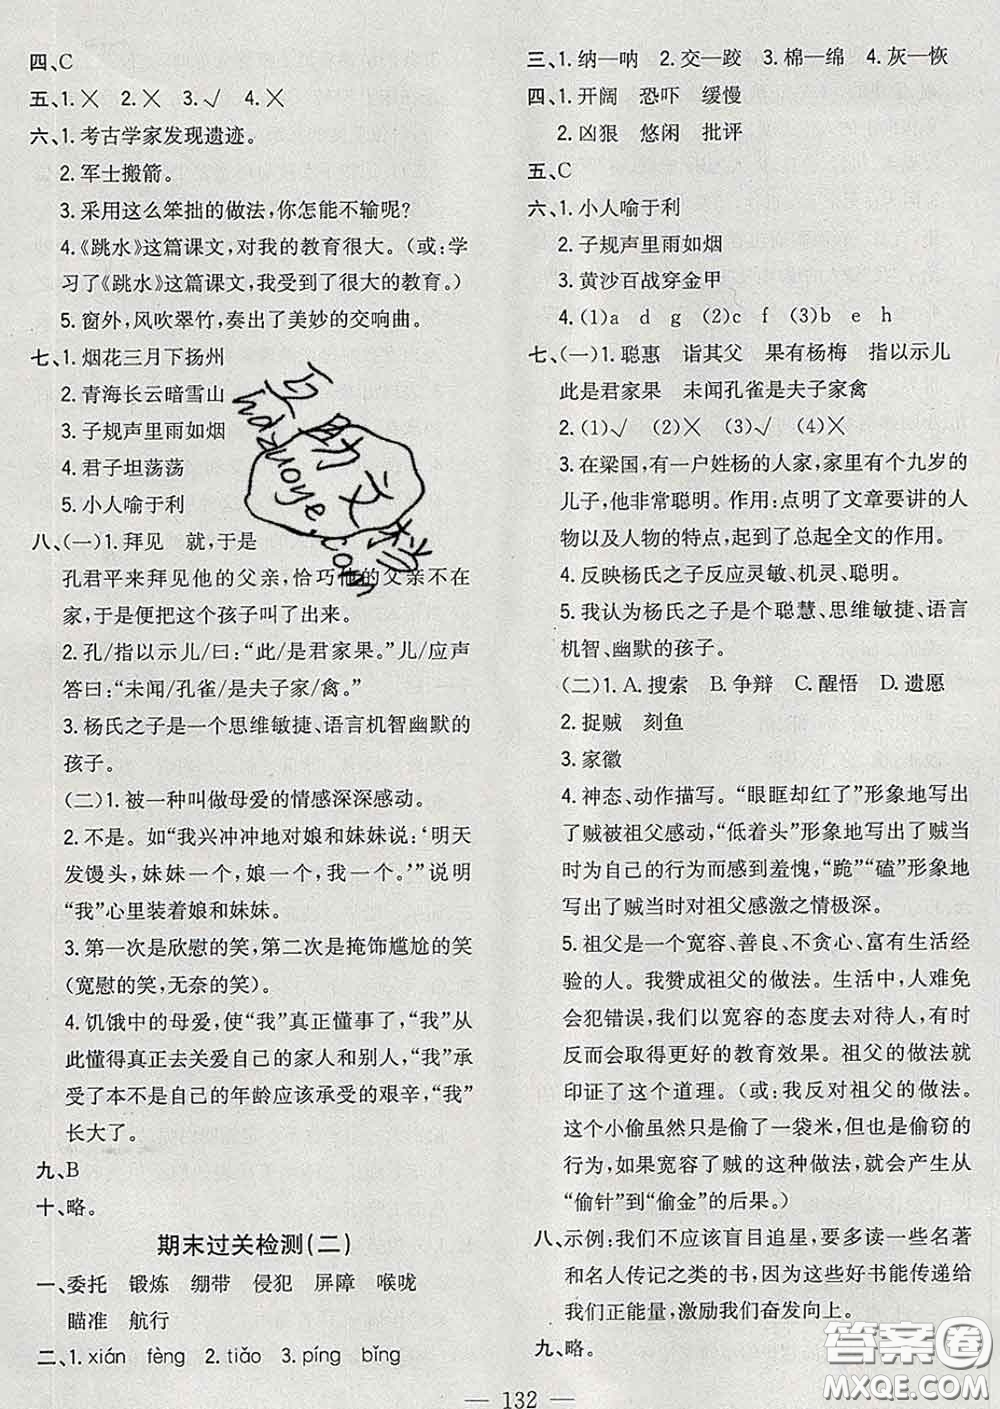 四、C
五、1.╳ 2.╳ 3.√ 4.╳
六、1.考古学家发现遗迹。
2.军士搬箭。
3.采用这么笨拙的做法，你怎能不输呢？
4.《跳水》这篇课文，对我的教育很大。（或：学
习了《跳水》这篇课文，我受到了很大的教育。）
5.窗外，风吹翠竹，奏出了美妙的交响曲。
七、1.烟花三月下扬州
2.青海长云暗雪山
3.子规声里雨如烟
4.君子坦荡荡
5.小人喻于利
八、(一)1.拜见 就，于是
孔君平来拜见他的父亲，恰巧他的父亲不在
家，于是便把这个孩子叫了出来。
2.孔/指以示儿/曰：“此/是君家果。”儿/应声
答曰：“未闻/孔雀/是夫子家/禽。”
3.杨氏之子是一个思维敏捷、语言机智幽默的
孩子。
(二)1.被一种叫做母爱的情感深深感动。
2.不是。如“我兴冲冲地对娘和妹妹说：‘明天
发馒头，妹妹一个，娘一个，我一个。’”说明
“我”心里装着娘和妹妹。
3.第一次是欣慰的笑，第二次是掩饰尴尬的笑
(宽慰的笑，无奈的笑)。
4.饥饿中的母爱，使“我”真正懂事了，“我”从
此懂得真正去关爱自己的家人和别人，“我”承
受了本不是我的年龄应该承受的艰辛，“我”
长大了。
九、B
十、略。
期末过关检测(二)
一、委托 锻炼 绷带 侵犯 屏障 喉咙
瞄准 航行
二、1.xián fèng 2.tiǎo 3.píng bǐng
三、1.纳—呐 2.交—跤 3.棉—绵 4.灰—恢
四、1.开阔 恐吓 缓慢
2.凶狠 悠闲 批评
五、C
六、1.小人喻于利
2.子规声里雨如烟
3.黄沙百战穿金甲
4.(1)a d g (2)c f (3)b e h
七、(一)1.聪惠 诣其父 果有杨梅 指以示儿
此是君家果 未闻孔雀是夫子家禽
2.(1)√ (2)╳ (3)√ (4)╳
3.在梁国，有一户姓杨的人家，家里有个九岁的
儿子，他非常聪明。作用：点明了文章要讲的人
物以及人物的特点，起到了总起全文的作用。
4.反映杨氏之子反应灵敏、机灵、聪明。
5.我认为杨氏之子是个聪慧、思维敏捷、语言
机智、幽默的孩子。
(二)1.A.搜索 B.争辩 C.醒悟 D.遗愿
2.捉贼 刻鱼
3.家徽
4.神态、动作描写。“眼眶却红了”形象地写出
了贼被祖父感动，“低着头”形象地写出了贼当
时为自己的行为而感到羞愧，“跪”“磕”形象地
写出了贼当时对祖父感激之情极深。
5.祖父是一个宽容、善良、不贪心、富有生活经
验的人。我赞成祖父的做法。生活中，人难免
会犯错误，我们以宽容的态度去对待人，有时
反而会取得更好的教育效果。祖父的做法就
印证了这个道理。（或：我反对祖父的做法。
这个小偷虽然只是偷了一袋米，但也有偷窃的
行为，祖父宽容了贼的这种做法，就会产生从
“偷针”到“偷金”的后果。）
八、示例：我们不应该盲目追星，要多读一些名著
和名人传记之类的书，因为这些好书能传递给
我们正能量，激励我们奋发向上。
九、略。
— 132 —
互助文档
hdzuoye.com
答案圈
MXQE.COM